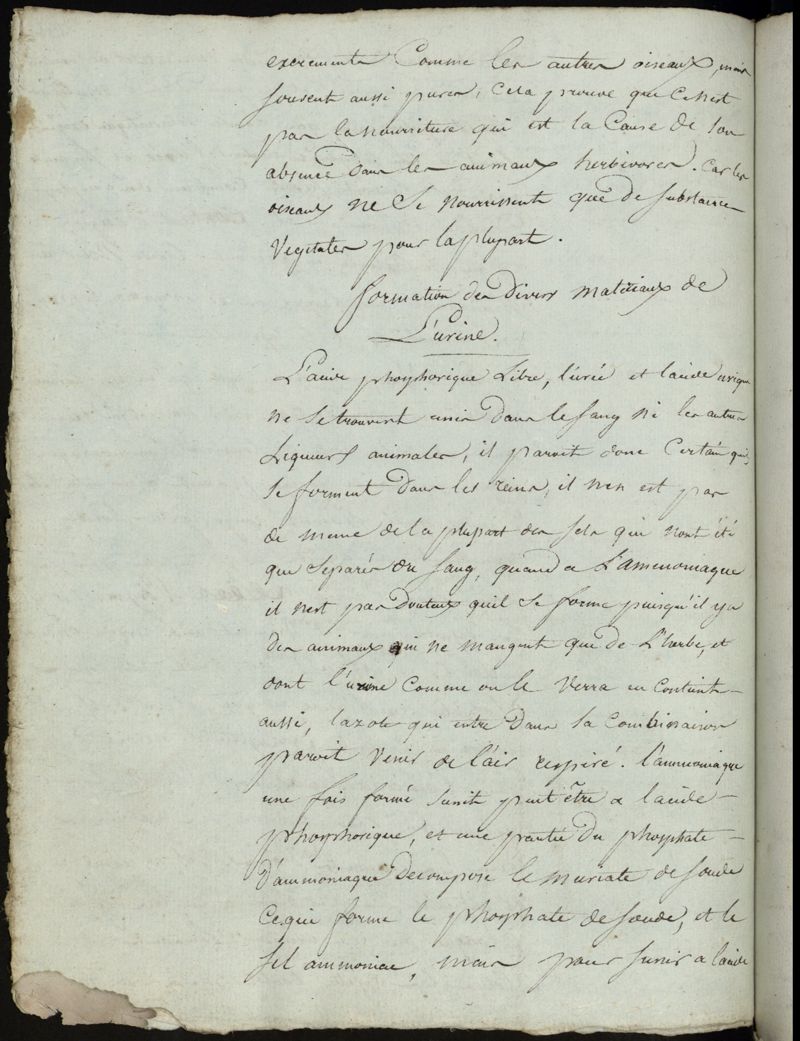 excrements Comme les autres oiseaux, mais
souvent aussi purs, cela prouve que ce nest
pas la nourriture qui est la Cause de son
absence dans les animaux herbivores. Car les
oiseaux ne Se nourrissent que de substances
Vegetales pour la plupart.
formation des divers matériaux de
L'urine.
L'acide phosphorique Libre, l'urée et lacide urique
ne se trouvent unis dans le sang ni les autres
Liqueurs animales, il paroit donc Certain qu'ils
se forment dans les reins, il nen est pas
de meme de la plupart des sels qui nont été
que Separés du sang, quand a L'ammoniaque
il nest pas douteux quil se forme puisqu'il y a
des animaux qui ne mangent que de L'herbe, et
dont l'urine comme on le verra en contient
aussi, lazote qui entre dans sa combinaison
paroit venir de l'air respiré. l'ammoniaque
une fois formé sunit peut être a lacide
phosphorique, et une partie du phosphate
D'ammoniaque Decompose le muriate de soude
Ce qui forme le phosphate de soude, et le
sel ammoniac, mais pour sunir a lacide